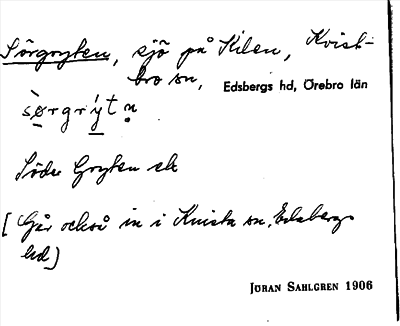 Sörgryten, sjö på Kilen, Kvist-
bro sn, Edsbergs hd, Örebro län
sø̀rgrýtn̥
Söder Gryten ek
[Går också in i Knista sn, Edsbergs
hd]
JÖRAN SAHLGREN 1906